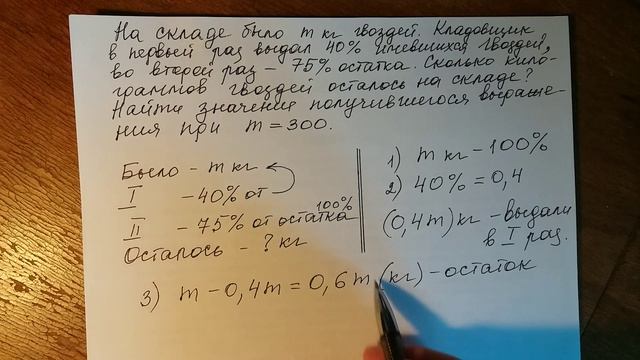 На складе было m кг гвоздей. Кладовщик
в первый раз выдал 40% имевшихся гвоздей,
во второй раз – 75% остатка. Сколько кило-
граммов гвоздей осталось на складе?
Найти значение получившегося выраже-
ния при m = 300.
Было – m кг
I – 40% от
100%
II – 75% от остатка
Осталось – ? кг
1) m кг – 100%
2) 40% = 0,4
(0,4m) кг – выдали
в I раз.
3) m – 0,4m = 0,6m (кг) – остаток